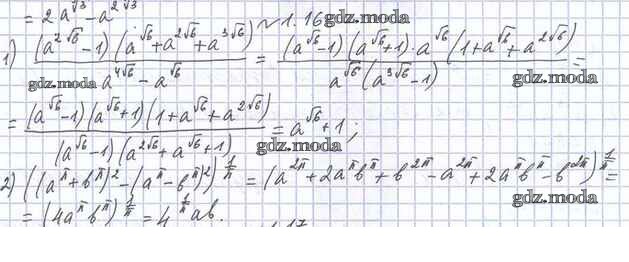 = 2a^√3 - a^2√3 № 1.16 gdz.moda
1) (a^2√6 - 1)(a^√6 + a^2√6 + a^3√6) / (a^4√6 - a^√6) = (a^√6 - 1)(a^√6 + 1)·a^√6(1 + a^√6 + a^2√6) / (a^√6(a^3√6 - 1)) =
gdz.moda gdz.moda
= (a^√6 - 1)(a^√6 + 1)(1 + a^√6 + a^2√6) / ((a^√6 - 1)(a^2√6 + a^√6 + 1)) = a^√6 + 1; gdz.moda
gdz.moda
2) ((a^π + b^π)^2 - (a^π - b^π)^2)^1/π = (a^2π + 2a^π b^π + b^2π - a^2π + 2a^π b^π - b^2π)^1/π =
= (4a^π b^π)^1/π = 4^1/π ab. gdz.moda
1.17